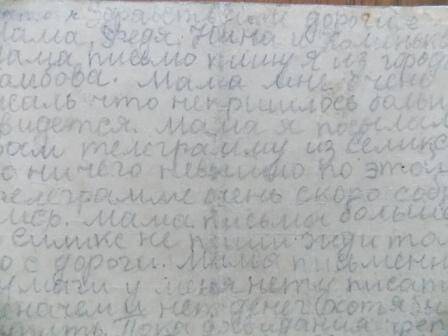 Здравствуйте дорогие
Мама, Федя, Нина и Колинька
Мама письмо пишу я из города
амбова. Мама мне очень
жаль что не пришлось больш
видется. Мама я посылал
вам телеграмму из
о ничего не по этой
телеграмме очень скоро соб
лись. Мама письма больше
не пиши жди то
о с дороги. Мама письменн
умаги у меня нету писат
ночем и нет денег (хотя)
Пока